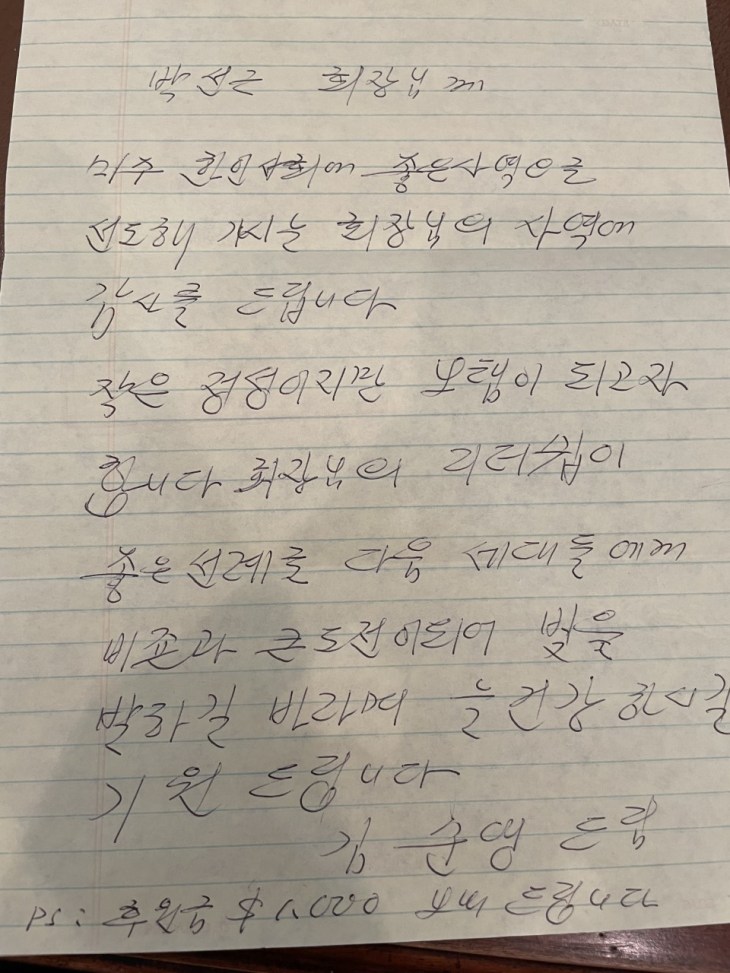 박선근 회장님께
미주 한인사회에 좋은사역으로
선도해 가시는 회장님의 사역에
감사를 드립니다
작은 정성이지만 보탬이 되고자
합니다 회장님의 리더쉽이
좋은선례를 다음 세대들에게
비죤과 큰도전이되어 빛을
발하길 바라며 늘건강하시길
기원드립니다
김 드림
PS: 후원금 $1,000 보내드립니다